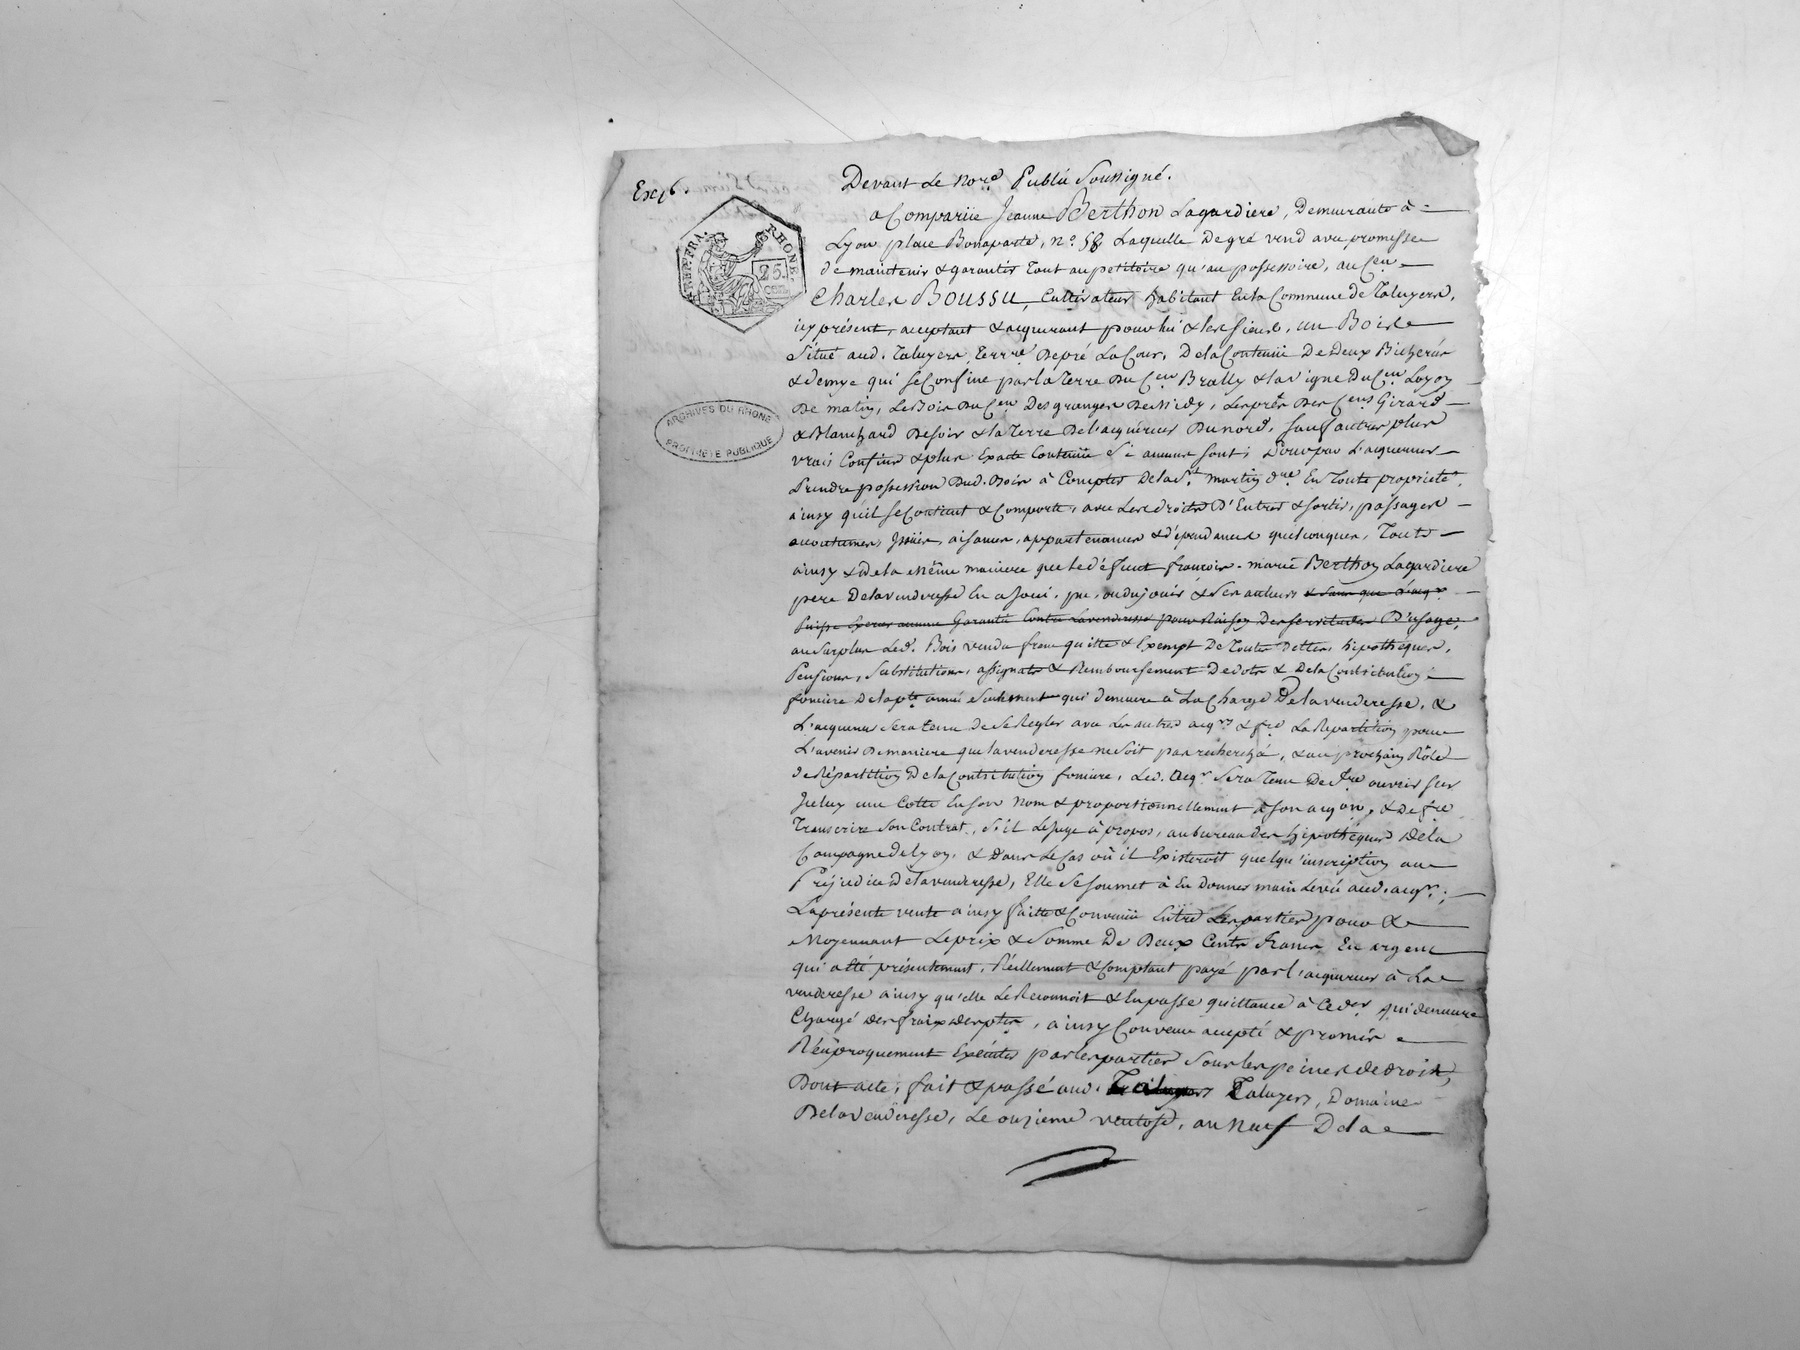 Exp.
Devant Le Nore. Public Soussigné.
REP. FRA. RHONE.
25. cen.
a Compariie Jeanne Berthon Lagardiere, Demeurante à
Lyon place Bonaparte, n°. 58 Laquelle De gré vend avec promesse
de maintenir & garantir tout au petitoire qu'au possessoire, au Cen
Charles Boussu, Cultivateur habitant En la Commune de Taluyers,
icy présent, acceptant & acquerant pour lui & les siens, un Bois
Situé aud. Taluyers, Terre De pré La Cour, De la Contenüe De Deux Bicherées
& demye qui se Confine par la Terre Du Cen Brally & la vigne Du Cen Loyon
De matin, Le Bois Du Cen Desgranges De Midy, Les prés Des Cens Girard
ARCHIVES DU RHONE
PROPRIETE PUBLIQUE
& Blanchard De soir & la Terre De l'acquéreur Du nord, sauf autres plus
vrais Confins & plus Exacte Contenüe Si aucuns sont; Pour par L'acquereur
Prendre possession Dud. Bois à Compter De la St. Martin Dre En Toute proprieté,
ainsy qu'il se Contient & Comporte, avec Les droits D'Entrer & sortir, passages
accoutumés, Issües, aisances, appartenances & dépendances quelconques, Tout
ainsy & De la Même maniere que le défunt françois-marie Berthon Lagardiere
pere De la venderesse En a joui, pu, ou du jouir & Ses auteurs & sans que l'acqr.
Puisse Exercer aucune Garantie Contre La venderesse pour Raison Des servitudes D'usage,
au Surplus Led. Bois vendu franc quitte & Exempt De Toutes Dettes, hipothéques,
Pensions, Substitutions, assignats & Remboursement De dots & De la Contribution
fonciere De la pte. année Seulement qui demeure à La Charge De la venderesse, &
L'acquereur Sera tenu de Se Regler avec Les autres acqrs & fre La Repartition pour
L'avenir De maniere que la venderesse ne Soit pas recherchée, & au prochain Rôle
de Répartition De la Contribution fonciere, Led. acqr Sera Tenu De fre ouvrir sur
Icelux une Cotte En son Nom & proportionnellement à son acqon, & De fre
Transcrire Son Contrat, S'il Le juge à propos, au bureau des hipothéques De la
Campagne de Lyon, & Dans Le Cas où il Existeroit quelqu'inscription au
Préjudice De la venderesse, Elle Se soumet à En Donner main Levée aud. acqr.;
La présente vente ainsy faitte & Convenüe Entre Les parties pour &
Moyennant Le prix & Somme De Deux Cents francs En argent
qui a été présentement, Réellement & Comptant payé par l'acquereur à La
venderesse ainsy qu'elle Le Reconnoit & En passe quittance à Ced. qui demeure
Chargé des fraix des ptes, ainsy Convenu accepté & promis
Réciproquement Exécuter par les parties Sous les peines de droit,
Dont acte, fait & passé aud. Taluyers Taluyers, Domaine
De la venderesse, Le onzieme ventose, an Neuf De la